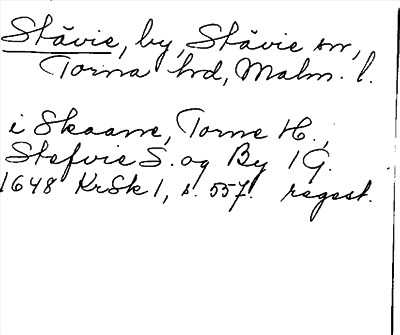 Stävie, by, Stävie sn,
Torna hrd, Malm. l.
i Skaane, Torne H.,
Stefvie S. og By 1 G.
1648 KrSk 1, s. 557. regest.